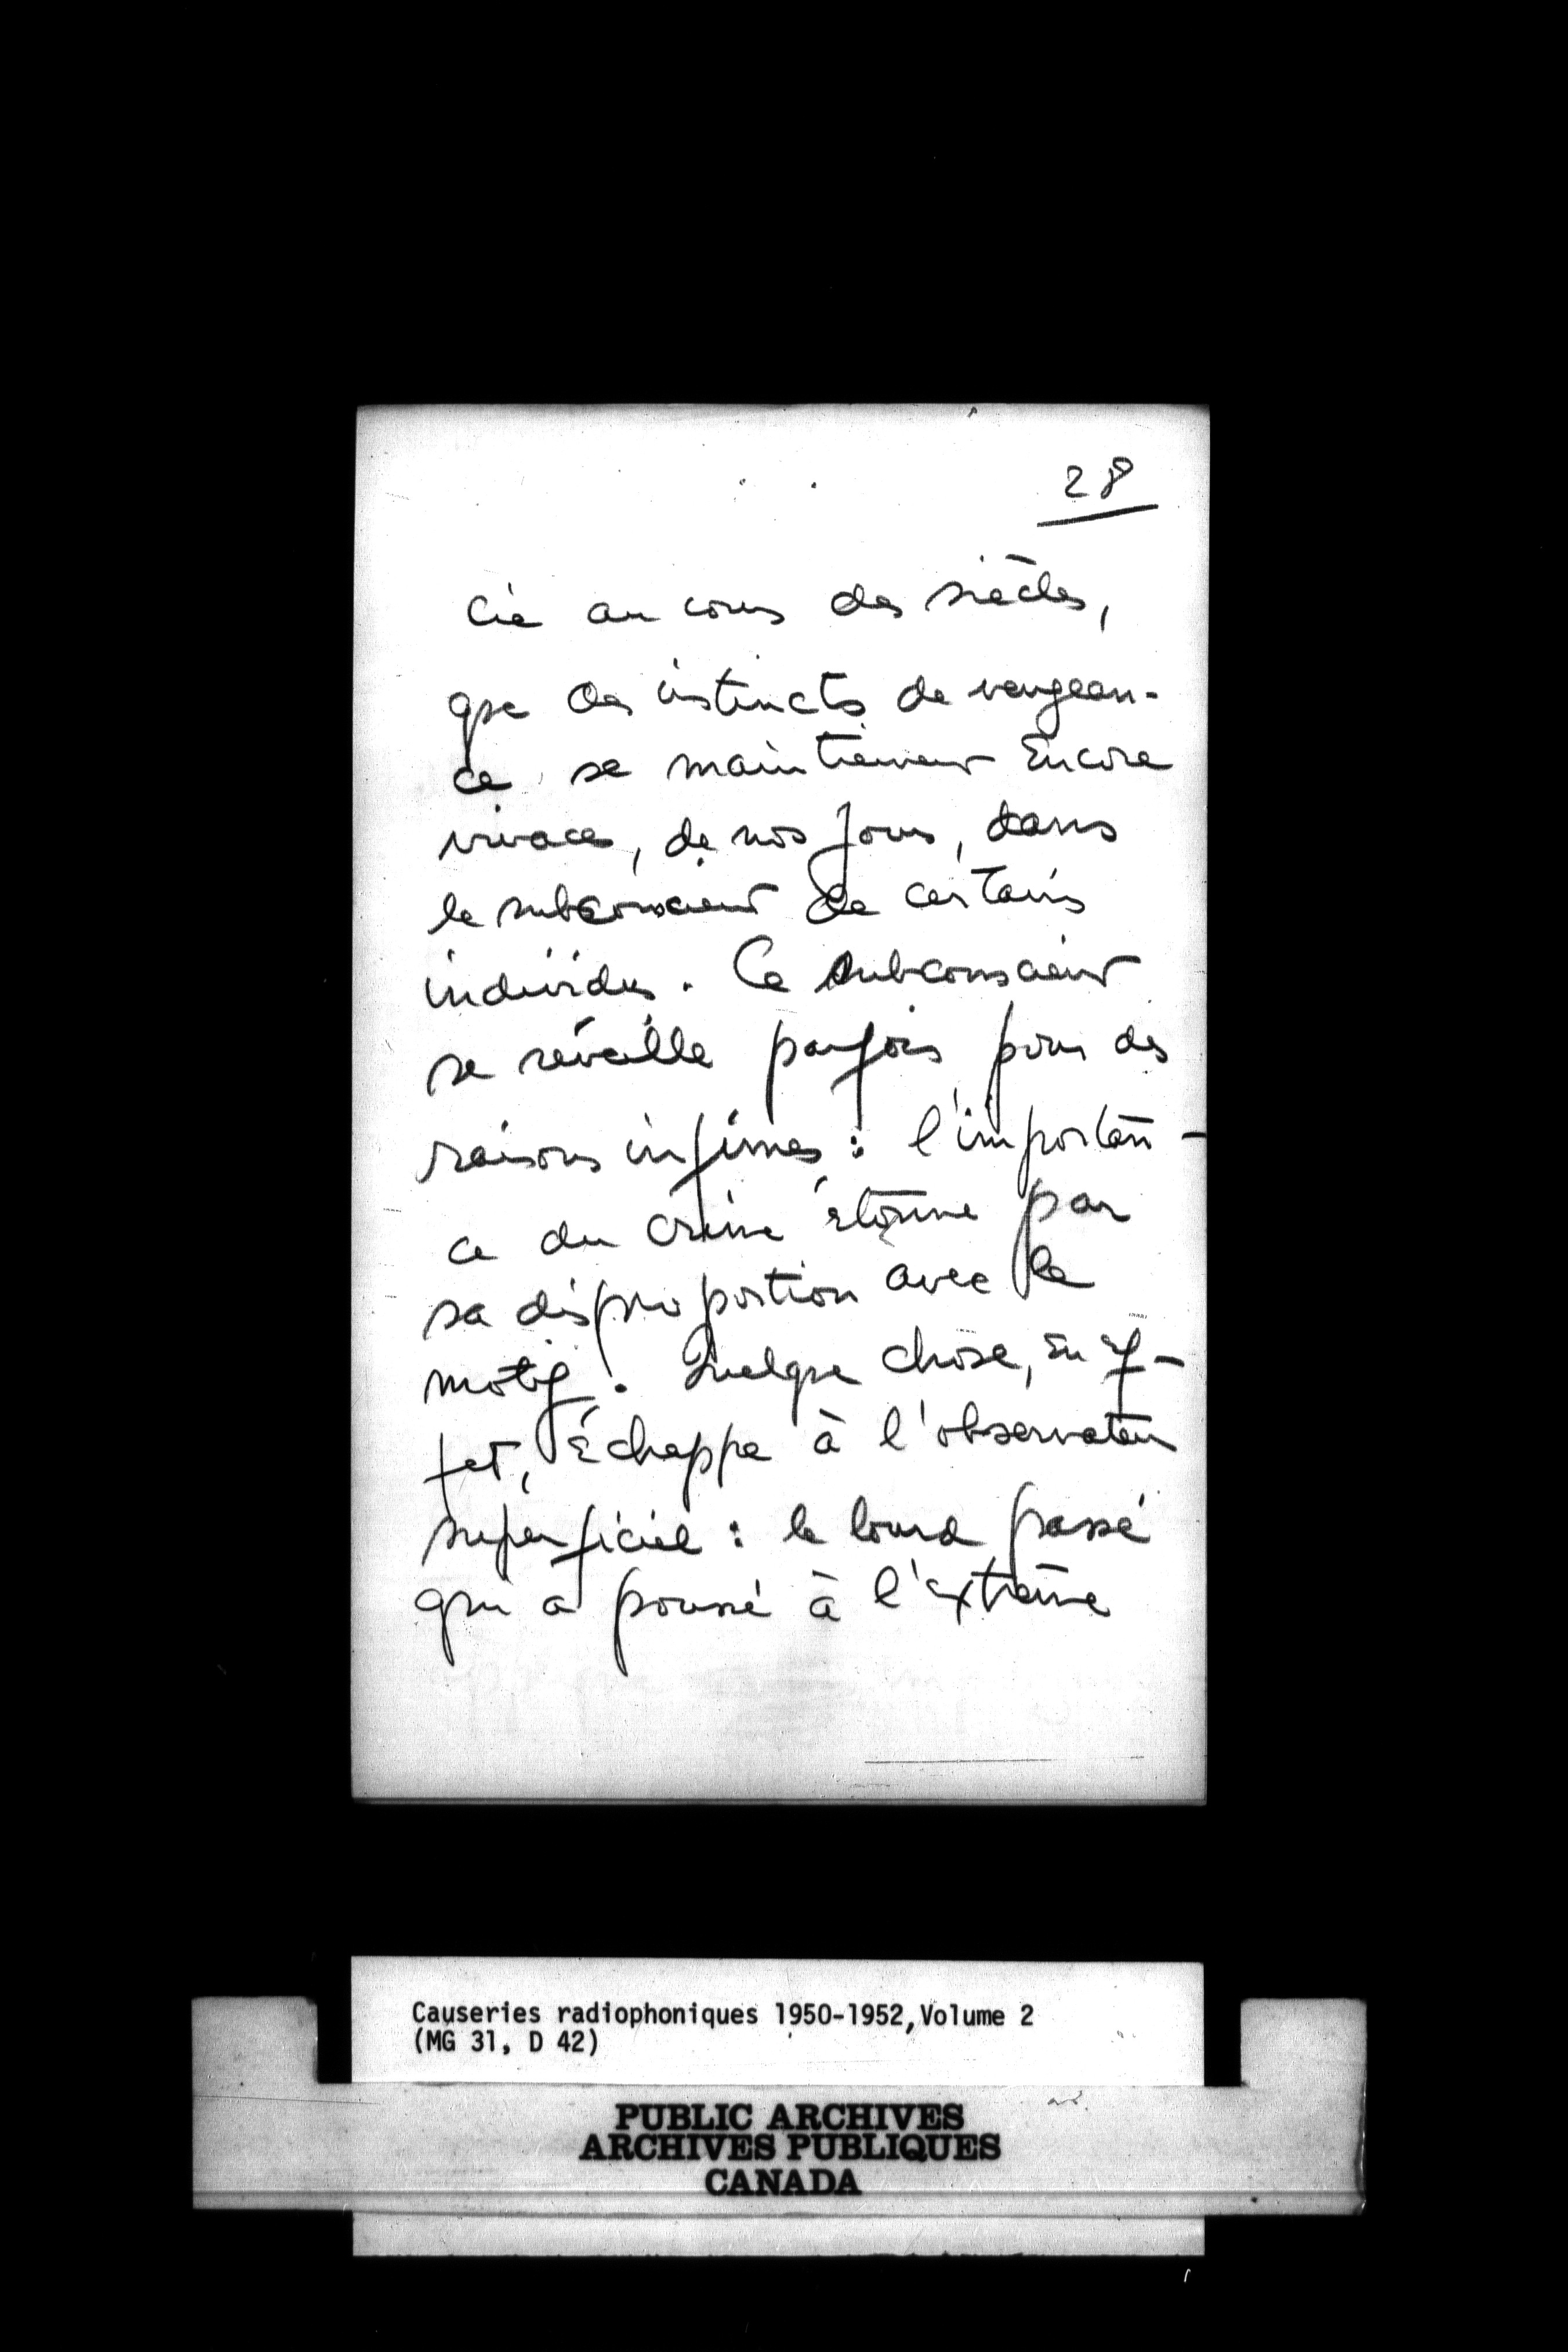 28
cié au cours des siècles,
que des instincts de vengean-
ce se maintiennent encore
vivaces, de nos jours, dans
le subconscient de certains
individus. Ce subconscient
se réveille parfois pour des
raisons infimes : l'importan-
ce du crime étonne par
sa disproportion avec le
motif. Quelque chose, en ef-
fet, échappe à l'observateur
superficiel : le lourd passé
qui a poussé à l'extrême
Causeries radiophoniques 1950-1952, Volume 2
(MG 31, D 42)
PUBLIC ARCHIVES
ARCHIVES PUBLIQUES
CANADA